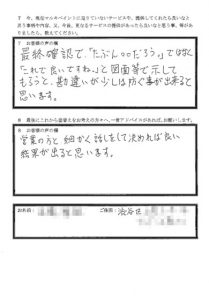 7 今、現在マルキペイントに足りていないサービスや、提供してくれたら良いなと
思う事柄や内容、又、今後、更なるサービスの提供があったら良いなと思う事、等があ
りましたら、教えてください。
7 お客様の声の欄
最終確認で、「たぶん○○だろう。」ではなく
「これで良いですね。」と図面等で示して
もらうと、勘違いが少しは防ぐ事が出来ると
思います。
8 最後にこれから塗替えをお考えの方々へ、一言アドバイスがあれば、お願いします。
8 お客様の声の欄
営業の方と細かく話をして決めれば良い
結果が出ると思います。
お名前:
ご住所: 渋谷区